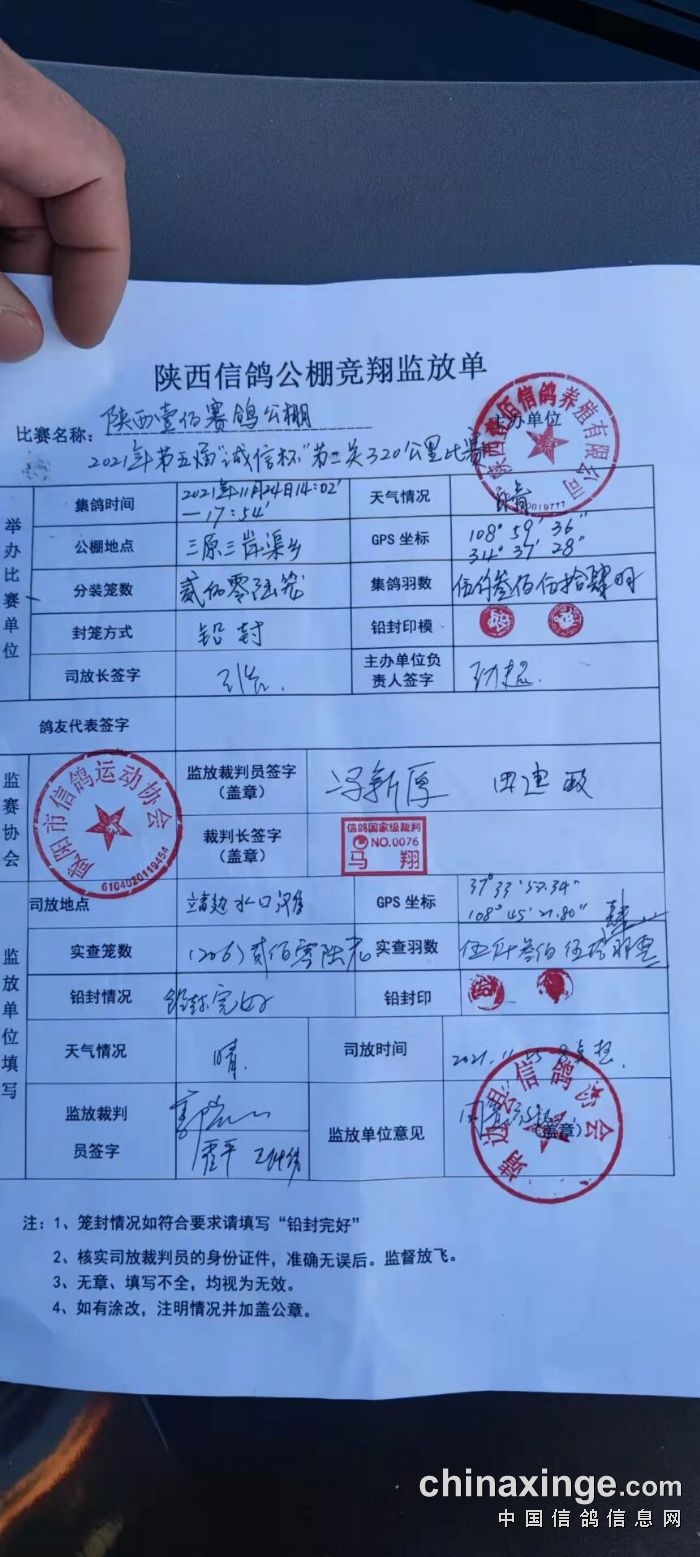 陕西信鸽公棚竞翔监放单
比赛名称：陕西壹佰赛鸽公棚 主办单位
2021年第五届“诚信杯”第二关320公里比赛
陕西壹佰信鸽养殖有限公司
举办比赛单位
集鸽时间 2021年11月24日14:02'—17:54' 天气情况
公棚地点 三原三岸渠乡 GPS坐标 108°59'36" 34°37'28"
分装笼数 贰佰零陆笼 集鸽羽数 伍仟叁佰伍拾肆羽
封笼方式 铅封 铅封印模
司放长签字 主办单位负责人签字
鸽友代表签字
监赛协会
咸阳市信鸽运动协会
6104020119454
监放裁判员签字（盖章） 冯新厚
裁判长签字（盖章）
信鸽国家级裁判
NO.0076
马翔
监放单位填写
司放地点 靖边水口 GPS坐标 37°33' 108°45'21.80"
实查笼数 (206)贰佰零陆笼 实查羽数 伍仟叁佰伍拾
铅封情况 铅封完好 铅封印
天气情况 晴 司放时间 2021.11.25
监放裁判员签字 监放单位意见 （盖章）
靖边县信鸽协会
注：1、笼封情况如符合要求请填写“铅封完好”
2、核实司放裁判员的身份证件，准确无误后。监督放飞。
3、无章、填写不全，均视为无效。
4、如有涂改，注明情况并加盖公章。
chinaxinge.com
中国信鸽信息网